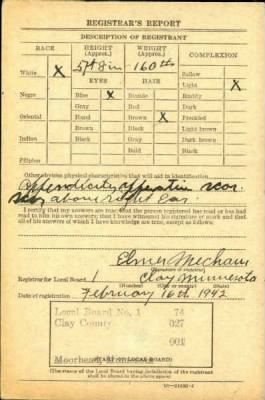 REGISTRAR'S REPORT
DESCRIPTION OF REGISTRANT
RACE
HEIGHT (Approx.)
WEIGHT (Approx.)
COMPLEXION
White X
5 ft 8 in
160 lbs
Sallow
EYES
HAIR
Light X
Negro
Blue X
Blonde
Ruddy
Gray
Red
Dark
Oriental
Hazel
Brown X
Freckled
Brown
Black
Light brown
Indian
Black
Gray
Dark brown
Bald
Black
Filipino
Other obvious physical characteristics that will aid in identification
Appendicitis operation scar.
Scar above right ear.
I certify that my answers are true; that the person registered has read or has had
read to him his own answers; that I have witnessed his signature or mark and that
all of his answers of which I have knowledge are true, except as follows:
Elmer Mecham
(Signature of registrar)
Registrar for Local Board 1 Clay Minnesota
(Number) (City or county) (State)
Date of registration February 16th 1942
Local Board No. 1 74
Clay County 027
901
Moorhead,
(STAMP OF LOCAL BOARD)
(The stamp of the Local Board having jurisdiction of the registrant
shall be placed in the above space)